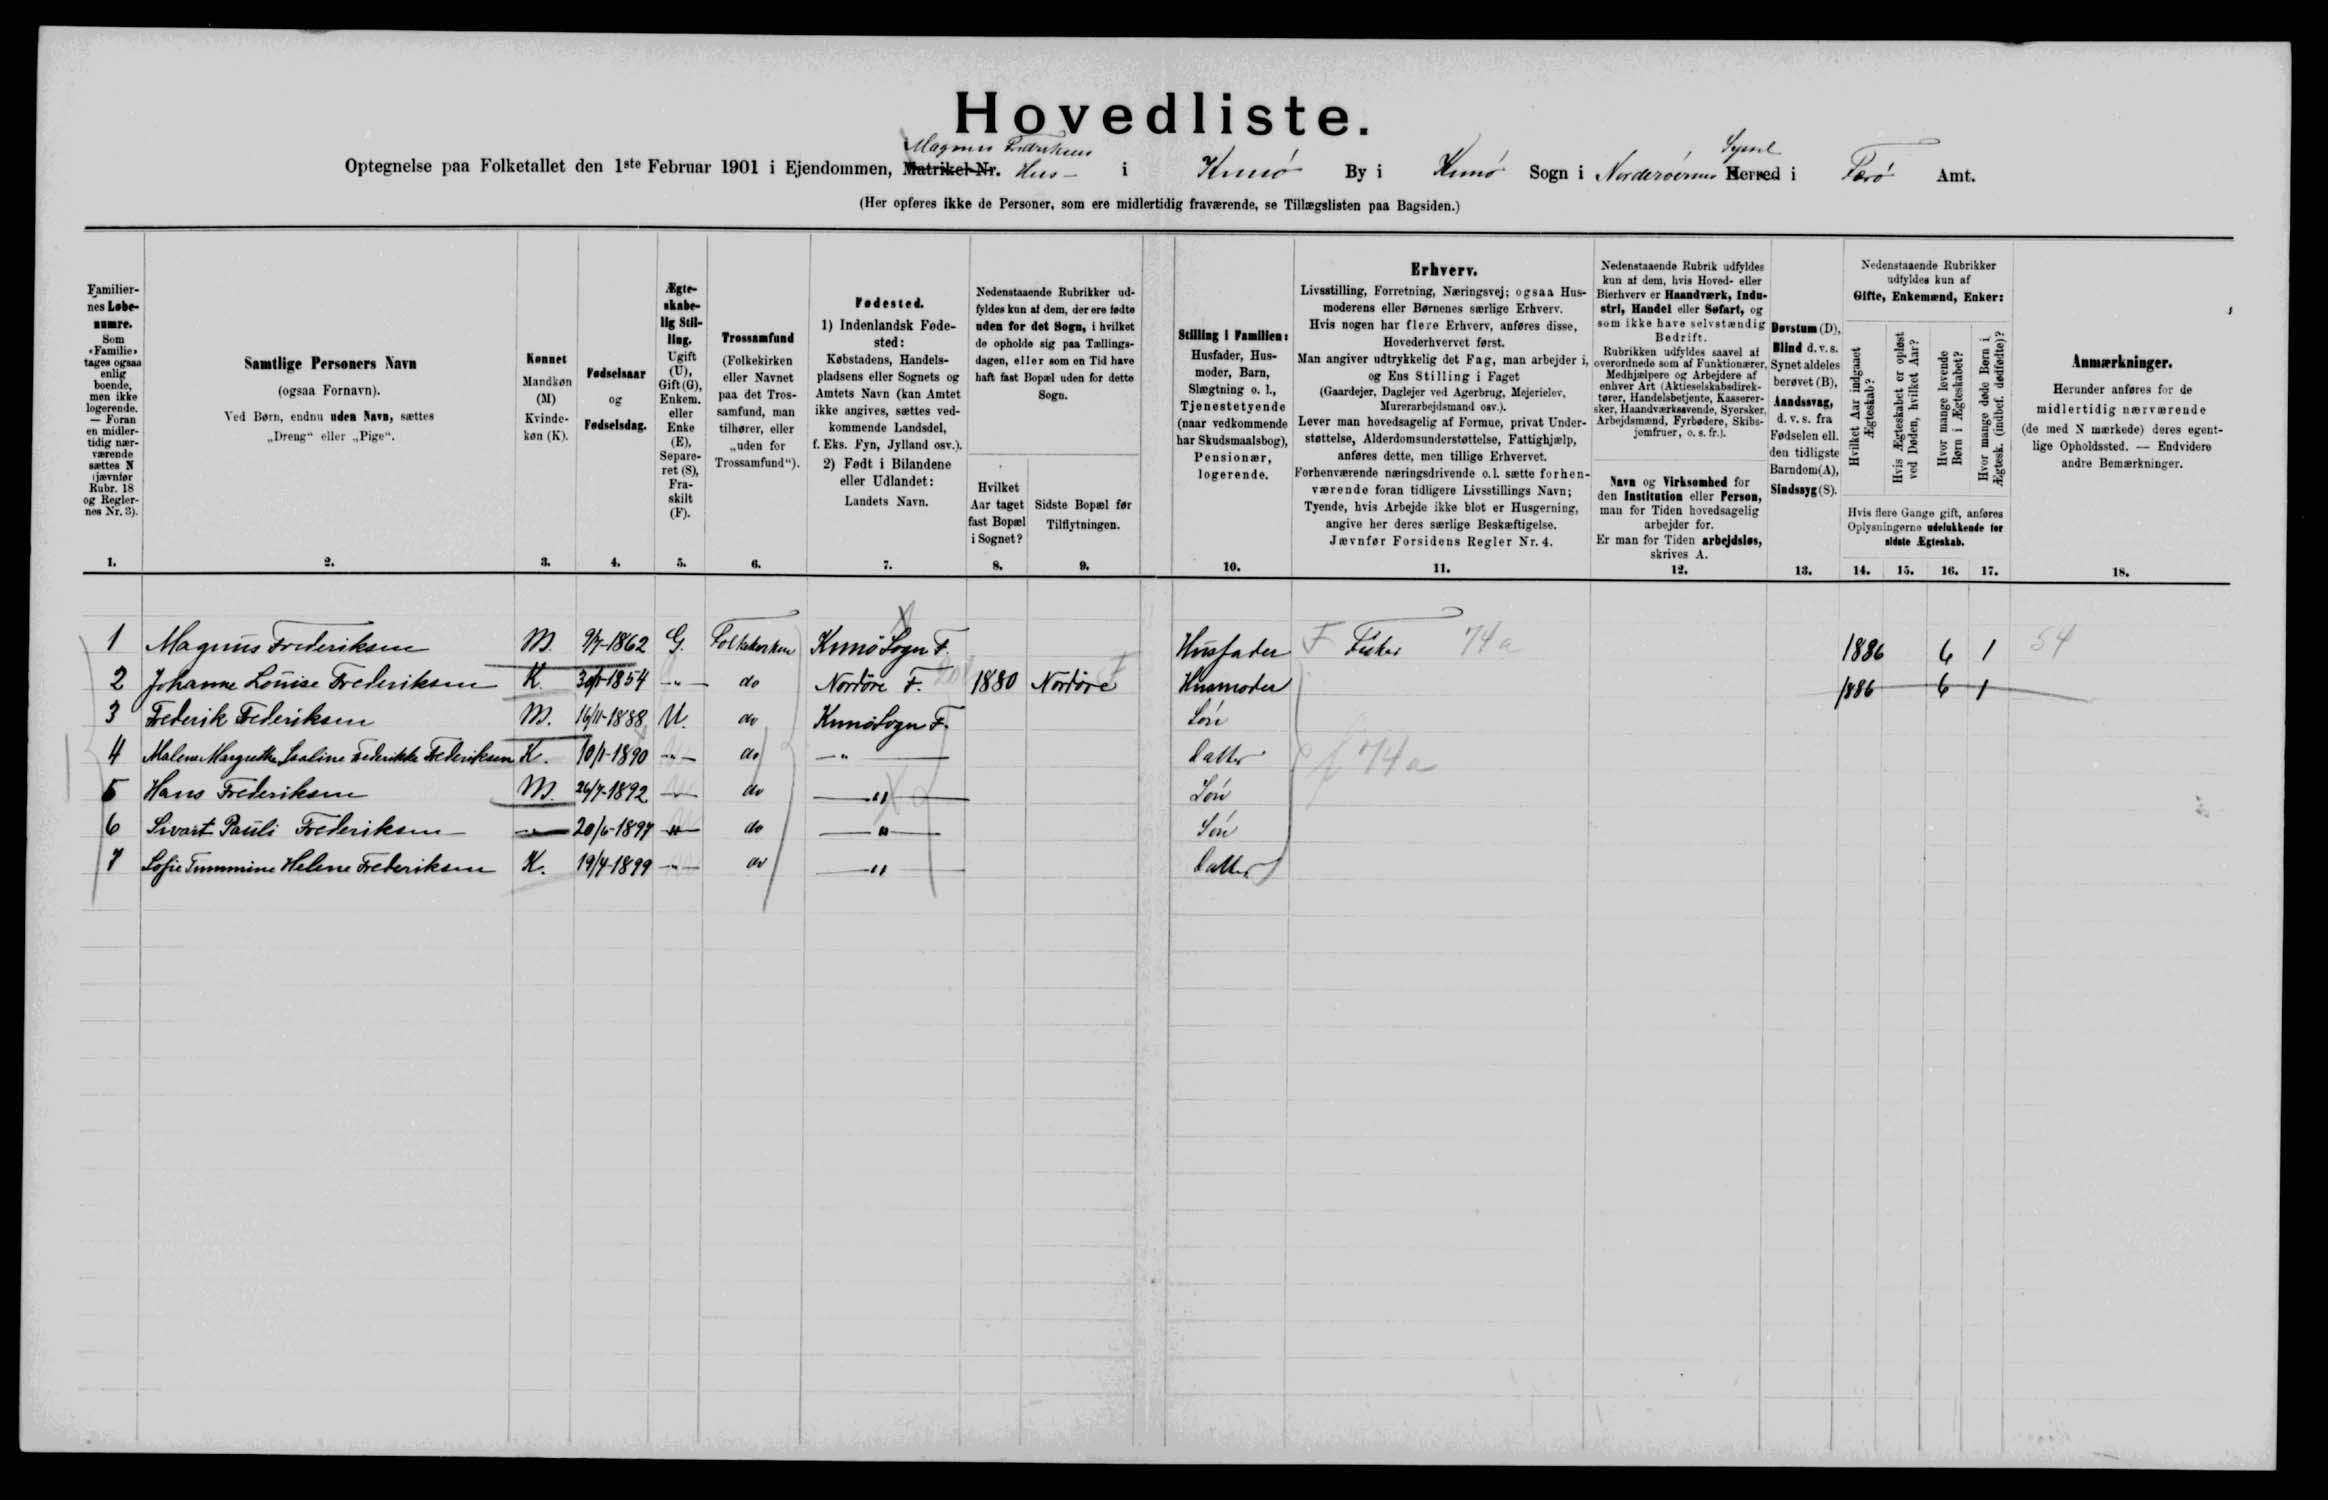 Hovedliste.
Magnus Frederiksens Syssel
Optegnelse paa Folketallet den 1ste Februar 1901 i Ejendommen, Matrikel-Nr. Hus i Kunø By i Kunø Sogn i Norderøernes Herred i Færø Amt.
(Her opføres ikke de Personer, som ere midlertidig fraværende, se Tillægslisten paa Bagsiden.)
Familier-
nes Løbe-
numre.
Som
«Familie»
tages ogsaa
enlig
boende,
men ikke
logerende.
— Foran
en midler-
tidig nær-
værende
sættes N
(jævnfør
Rubr. 18
og Regler-
nes Nr. 3).
1.
Samtlige Personers Navn
(ogsaa Fornavn).
Ved Børn, endnu uden Navn, sættes
„Dreng“ eller „Pige“.
2.
Kønnet
Mandkøn
(M)
Kvinde-
køn (K).
3.
Fødselsaar
og
Fødselsdag.
4.
Ægte-
skabe-
lig Stil-
ling.
Ugift
(U),
Gift (G),
Enkem.
eller
Enke
(E),
Separe-
ret (S),
Fra-
skilt
(F).
5.
Trossamfund
(Folkekirken
eller Navnet
paa det Tros-
samfund, man
tilhører, eller
„uden for
Trossamfund“).
6.
Fødested.
1) Indenlandsk Føde-
sted:
Købstadens, Handels-
pladsens eller Sognets og
Amtets Navn (kan Amtet
ikke angives, sættes ved-
kommende Landsdel,
f. Eks. Fyn, Jylland osv.).
2) Født i Bilandene
eller Udlandet:
Landets Navn.
7.
Nedenstaaende Rubrikker ud-
fyldes kun af dem, der ere fødte
uden for det Sogn, i hvilket
de opholde sig paa Tællings-
dagen, eller som en Tid have
haft fast Bopæl uden for dette
Sogn.
Hvilket
Aar taget
fast Bopæl
i Sognet?
8.
Sidste Bopæl før
Tilflytningen.
9.
Stilling i Familien:
Husfader, Hus-
moder, Barn,
Slægtning o. l.,
Tjenestetyende
(naar vedkommende
har Skudsmaalsbog),
Pensionær,
logerende.
10.
Erhverv.
Livsstilling, Forretning, Næringsvej; ogsaa Hus-
moderens eller Børnenes særlige Erhverv.
Hvis nogen har flere Erhverv, anføres disse,
Hovederhvervet først.
Man angiver udtrykkelig det Fag, man arbejder i,
og Ens Stilling i Faget
(Gaardejer, Daglejer ved Agerbrug, Mejerielev,
Murerarbejdsmand osv.).
Lever man hovedsagelig af Formue, privat Under-
støttelse, Alderdomsunderstøttelse, Fattighjælp,
anføres dette, men tillige Erhvervet.
Forhenværende næringsdrivende o.l. sætte forhen-
værende foran tidligere Livsstillings Navn;
Tyende, hvis Arbejde ikke blot er Husgerning,
angive her deres særlige Beskæftigelse.
Jævnfør Forsidens Regler Nr. 4.
11.
Nedenstaaende Rubrik udfyldes
kun af dem, hvis Hoved- eller
Bierhverv er Haandværk, Indu-
stri, Handel eller Søfart, og
som ikke have selvstændig
Bedrift.
Rubrikken udfyldes saavel af
overordnede som af Funktionærer,
Medhjælpere og Arbejdere af
enhver Art (Aktieselskabsdirek-
tører, Handelsbetjente, Kasserer-
sker, Haandværkssvende, Syersker,
Arbejdsmænd, Fyrbødere, Skibs-
jomfruer, o. s. fr.).
Navn og Virksomhed for
den Institution eller Person,
man for Tiden hovedsagelig
arbejder for.
Er man for Tiden arbejdsløs,
skrives A.
12.
Døvstum (D),
Blind d. v. s.
Synet aldeles
berøvet (B),
Aandssvag,
d. v. s. fra
Fødselen ell.
den tidligste
Barndom (A),
Sindssyg (S).
13.
Nedenstaaende Rubrikker
udfyldes kun af
Gifte, Enkemænd, Enker:
Hvilket Aar indgaaet
Ægteskab?
Hvis Ægteskabet er opløst
ved Døden, hvilket Aar?
Hvor mange levende
Børn i Ægteskabet?
Hvor mange døde Børn i
Ægtesk. (indbef. dødfødte)?
Hvis flere Gange gift, anføres
Oplysningerne udelukkende for
sidste Ægteskab.
14. 15. 16. 17.
Anmærkninger.
Herunder anføres for de
midlertidig nærværende
(de med N mærkede) deres egent-
lige Opholdssted. — Endvidere
andre Bemærkninger.
18.
1 Magnus Frederiksen M. 9/7-1862 G. Folkekirken Kunø Sogn F. Husfader F Fisker 74a 1886 6 1 54
2 Johanne Louise Frederiksen K. 1854 -"- do Nordøre F. 1880 Nordøre F Husmoder 1886 6 1
3 Frederik Frederiksen M. 16/11-1888 U. do Kunø Sogn F. Søn
4 Malene Margrethe Frederikke Frederiksen K. 10/1-1890 -"- do -"- Datter f 74a
5 Hans Frederiksen M. 26/7-1892 -"- do -"- Søn
6 Sivart Pauli Frederiksen -"- 20/6-1897 -"- do -"- Søn
7 Sofie Tummine Helene Frederiksen K. 19/4-1899 -"- do -"- Datter